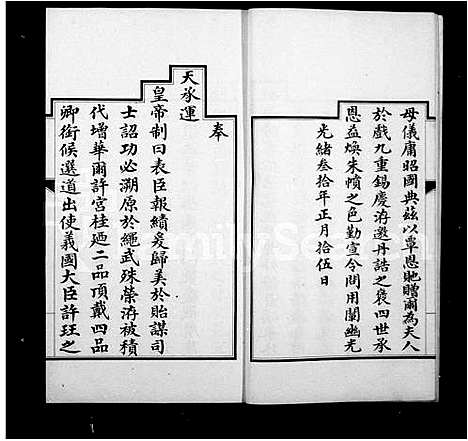 母儀庸昭國典茲以覃恩貤贈爾為夫人
於戲九重錫慶洊邀丹誥之褒四世承
恩益煥朱幩之色勤宣令問用闡幽光
光緒叁拾年正月拾伍日
奉
天承運
皇帝制曰表臣報績爰歸美於貽謀司
士詔功必溯原於繩武殊榮洊被積
代增華爾許宮桂廼二品頂戴四品
卿銜候選道出使義國大臣許玨之
FamilySearch